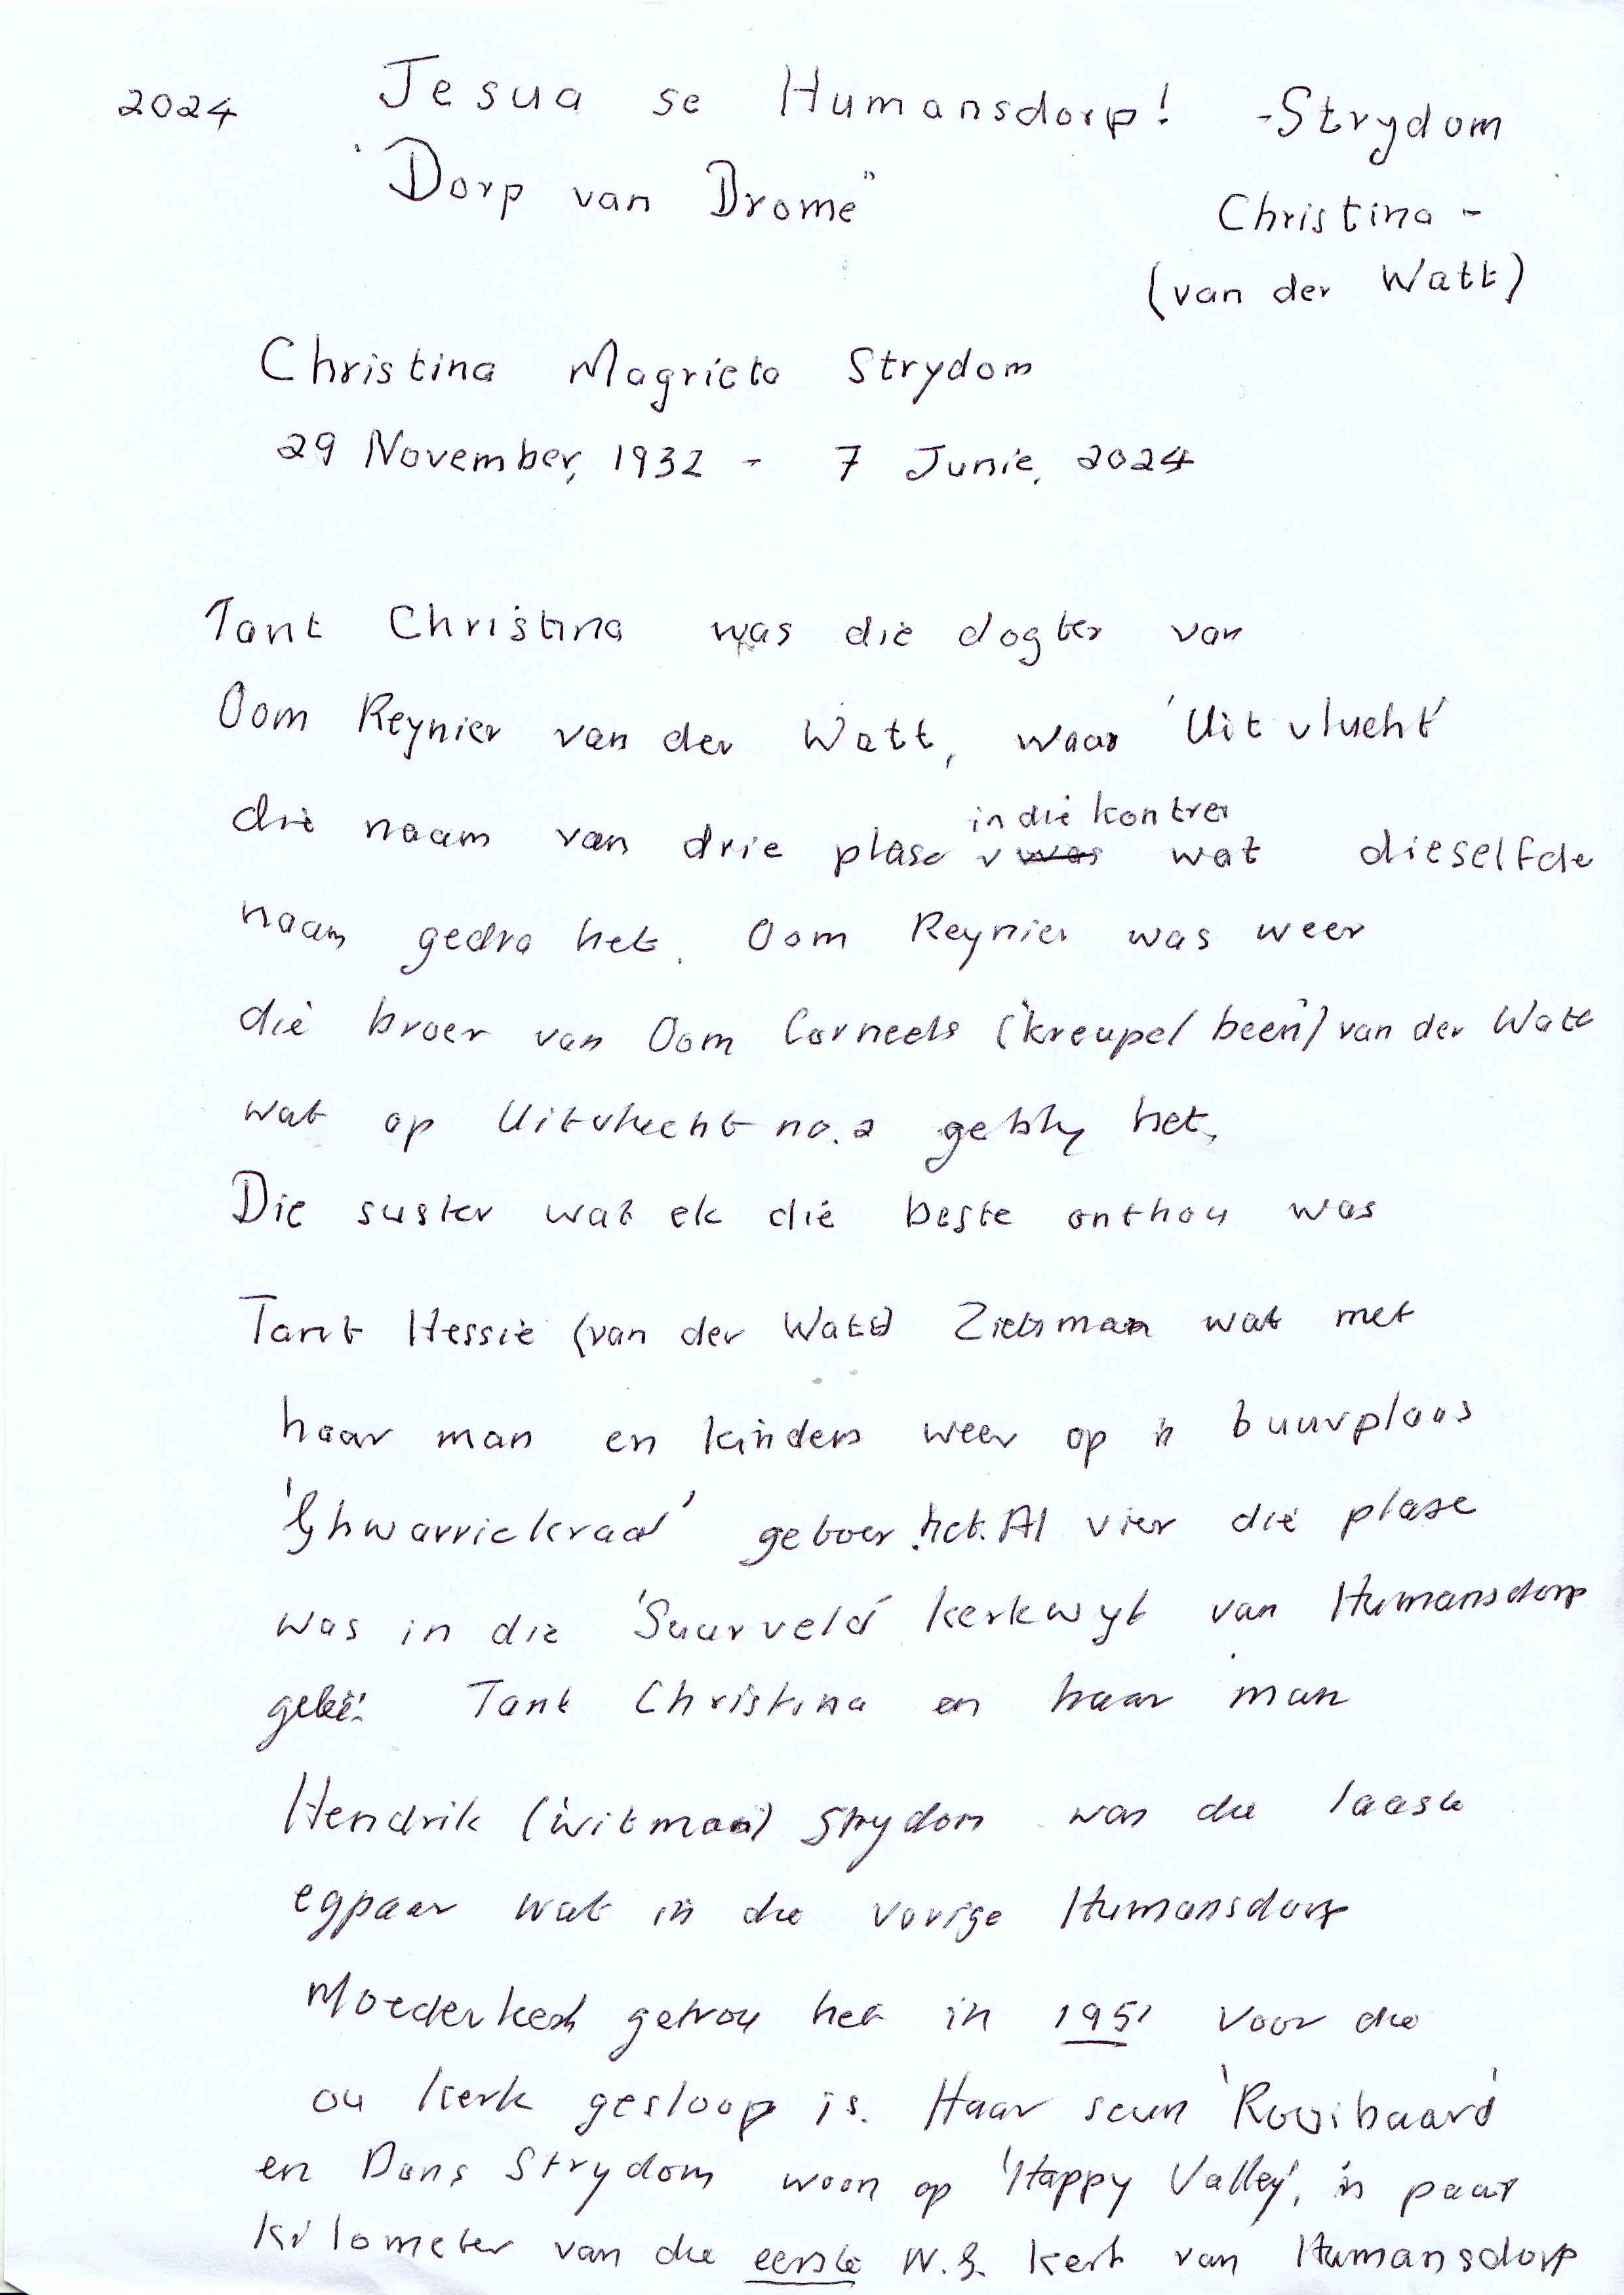 2024 Jesua se Humansdorp! -Strydom
"Dorp van Drome" Christina -
(van der Watt)
Christina Magrieta Strydom
29 November, 1932 - 7 Junie, 2024
Tant Christina was die dogter van
Oom Reynier van der Watt, waar 'Uitvlucht'
die naam van drie plase in die kontrei wat dieselfde
naam gedra het. Oom Reynier was weer
die broer van Oom Corneels ('kreupel been') van der Watt
wat op Uitvlucht no. 2 gebly het,
Die suster wat ek die beste onthou was
Tant Hessie (van der Watt) Zietsman wat met
haar man en kinders weer op 'n buurplaas
'Ghwarriekraal' geboer het. Al vier die plase
was in die 'Suurveld' kerkwyk van Humansdorp
geleë. Tant Christina en haar man
Hendrik ('witman') Strydom was die laaste
egpaar wat in die vorige Humansdorp
Moederkerk getrou het in 1951 voor die
ou kerk gesloop is. Haar seun 'Rooibaard'
en Dans Strydom woon op 'Happy Valley', 'n paar
kilometer van die eerste N.G. Kerk van Humansdorp